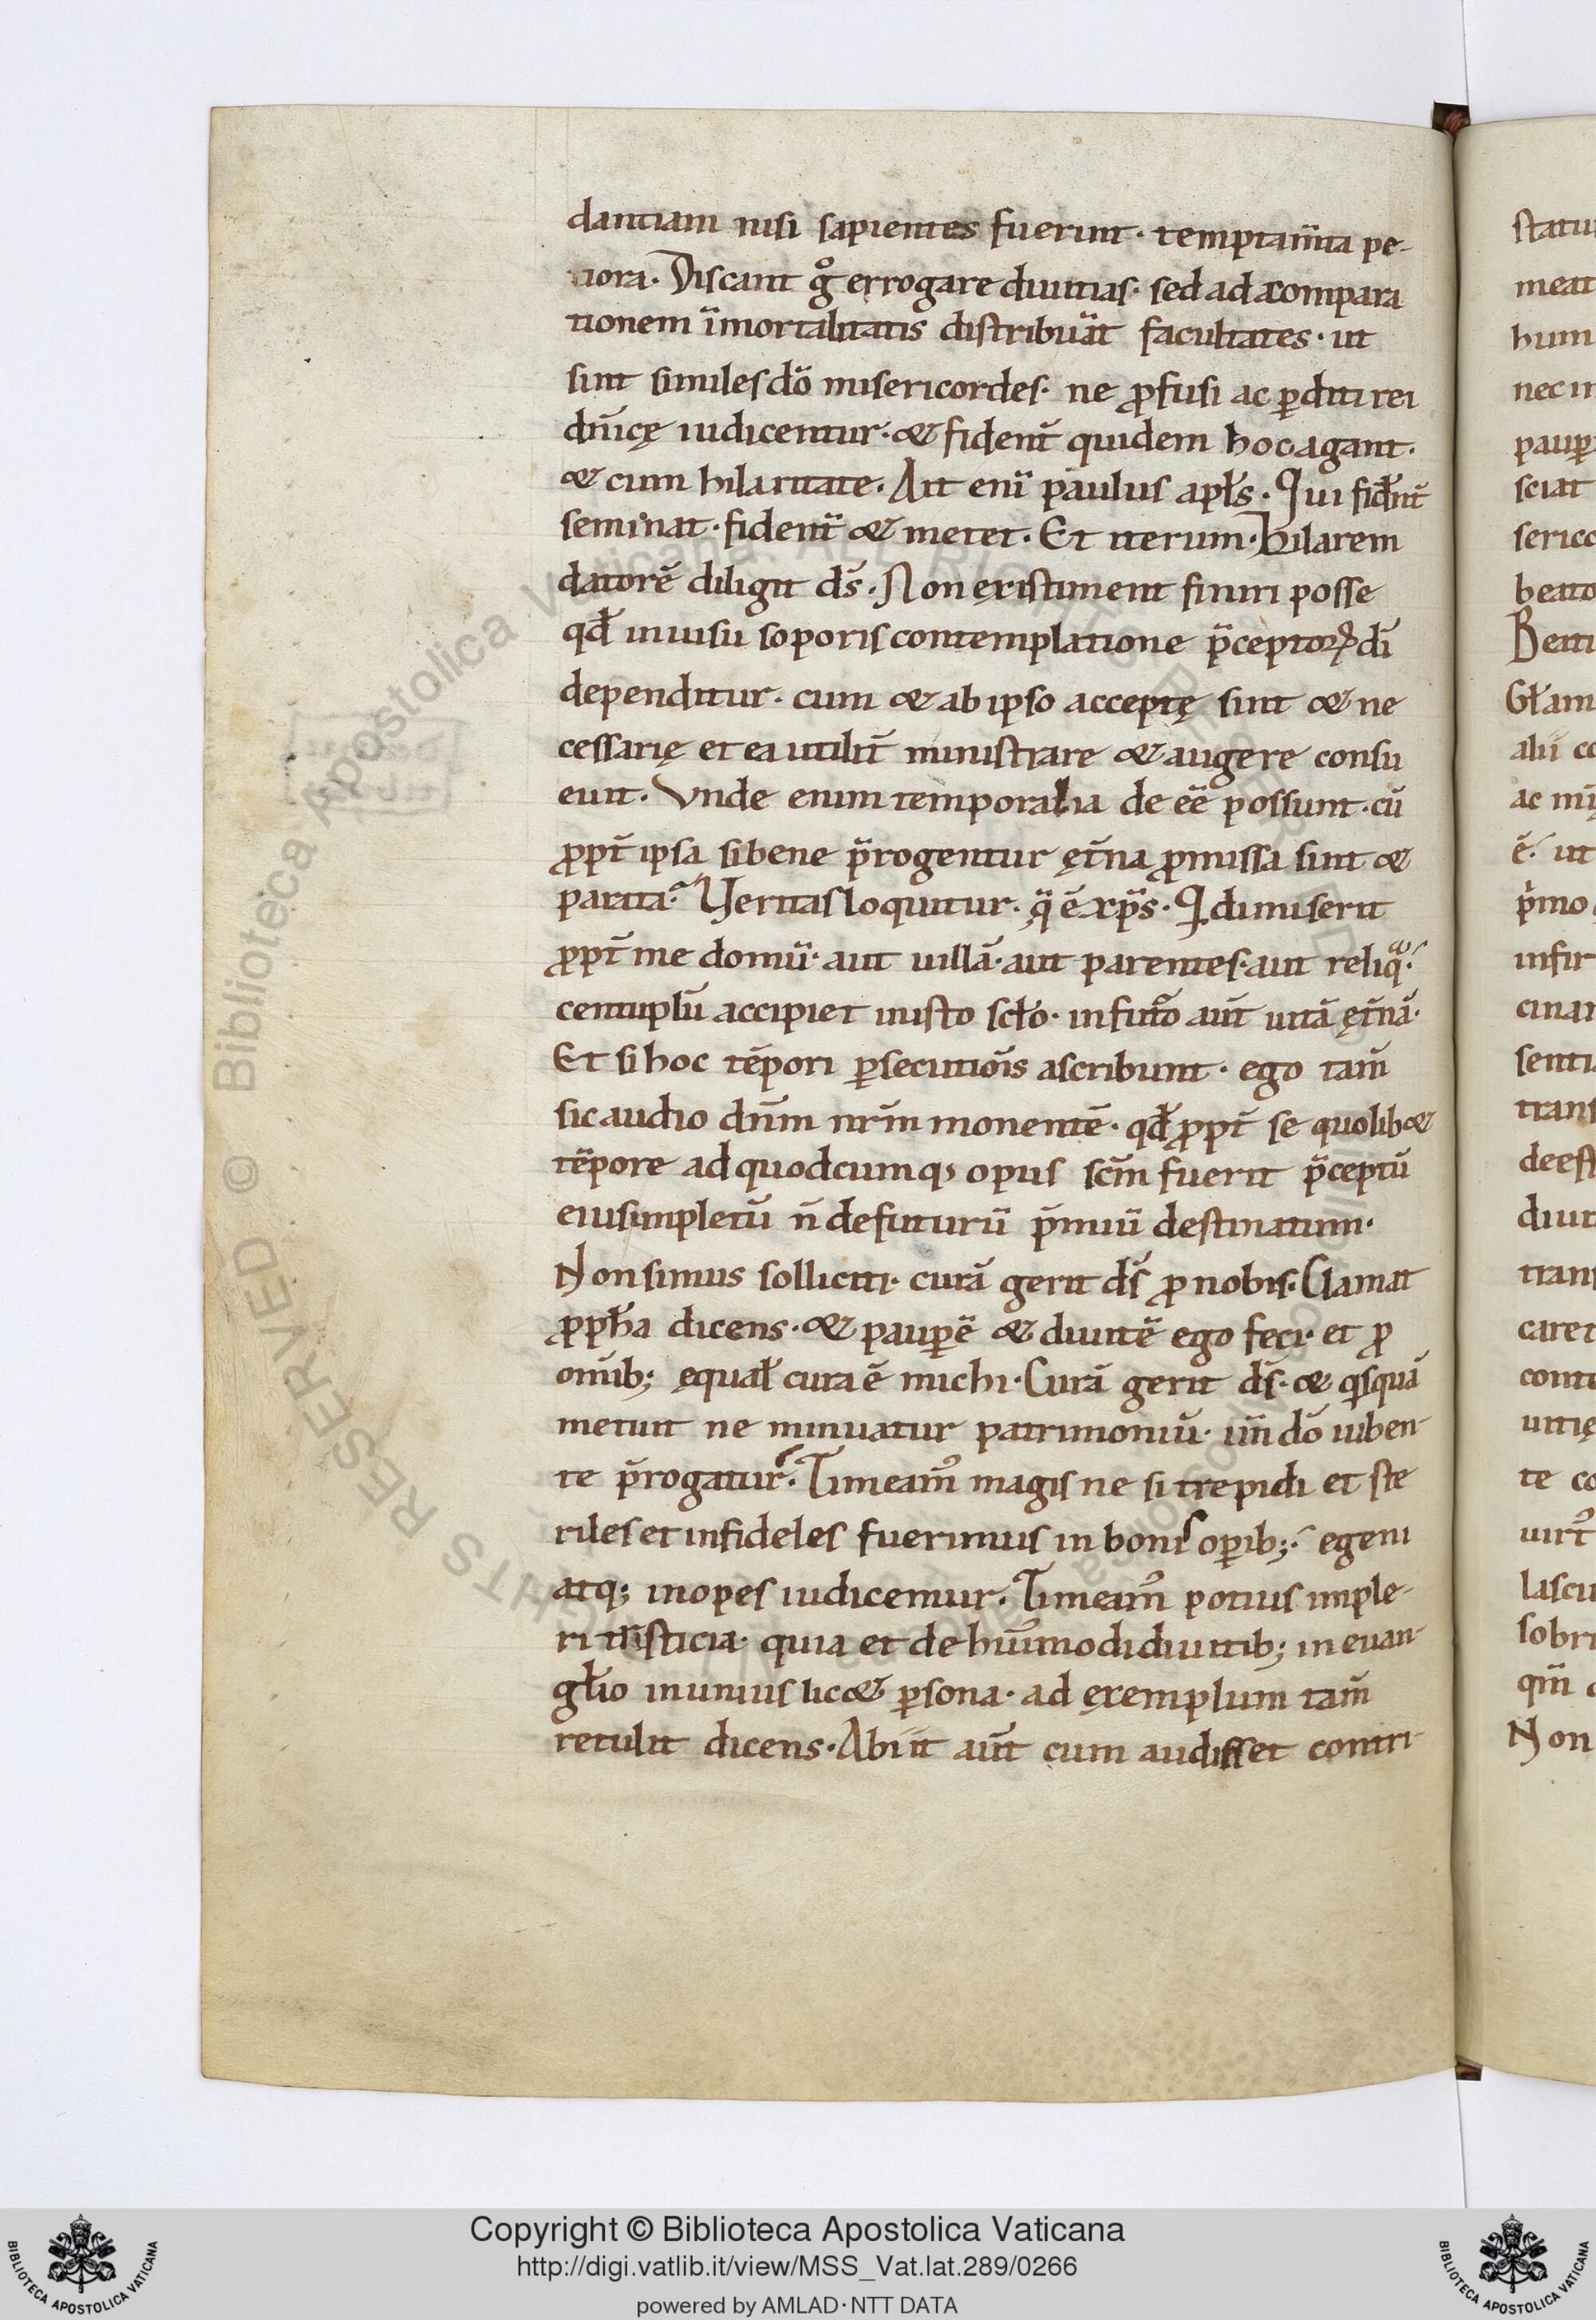 dantiam nisi sapientes fuerint· temptam̄ta pe-
tiora· Discant gͦ errogare diuitias· sed ad acompara
tionem īmortalitatis distribuāt facultates· ut
sint similes dō misericordes· ne ꝓfusi ac ꝑditi rei
dn̄icę iudicentur· & fident̄ quidem hoc agant·
& cum hilaritate· Ait enī paulus apl̄s· Qui fidn̄t̄
seminat· fident̄ & metet· Et iterum· Hilarem
datorē diligit ds̄· Non exꝭstiment finiri posse
qđ inuisu soporis contemplatione p̄ceptoꝝ dī
dependitur· cum & ab ipso acceptę sint & ne
cessarię et ea utilit̄ ministrare & augere consu
euit· Vnde enim temporalia de eē possunt· cū
ꝓpt̄ ipsa si bene p̄rogentur ęt̄na ꝓmissa sint &
parata· Veritas loquitur· q̄ ē xp̄s· Q dimiserit
ꝓpt̄ me domū· aut uillā· aut parentes· aut reliq̄·
centuplū accipiet in isto scło· in futo aut̄ uitā ęt̄nā·
Et si hoc tēpori ꝑsecutiōis ascribunt· ego tam̄
sic audio dn̄m nr̄m monentē· qđ ꝓpt̄ se quolib&
tēpore ad quodcumq; opus scm̄ fuerit p̄ceptū
eius impletū n̄ defuturū p̄miū destinatum·
Non simus solliciti· curā gerit ds̄ ꝓ nobis· Clamat
ꝓpħa dicens· & pauꝑē & diuitē ego feci· et ꝓ
omīb; ęqual̄ cura ē michi· Curā gerit ds̄· & qisquā
metuit ne minuatur patrimoniū· un̄ dō iuben-
te p̄rogatur· Timeam᷒ magis ne si trepidi et ste
riles et infideles fuerimus in bonis oꝑib;· egeni
atq; inopes iudicemur· Timeam᷒ potius imple-
ri tristicia· quia et de hui᷒modi diuitib; in euan-
gl̄io in unius lic& ꝑsona· ad ęxemplum tam̄
retulit dicens· Abiit aut̄ cum audisset contri-
statu
meat
hum
nec in
pauꝑ
sciat
serico
beato
Beati
Gl̄am
alii co
ac mi
ē· ut
pⁱmo
infir
cinar
senti
trans
deest
diuit
trans
caret
conte
uitię
te co
uirt᷒
lasciu
sobri
qm̄
Non
Copyright © Biblioteca Apostolica Vaticana
http://digi.vatlib.it/view/MSS_Vat.lat.289/0266
powered by AMLAD·NTT DATA
BIBLIOTECA APOSTOLICA VATICANA
BIBLIOTECA APOSTOLICA VATICANA